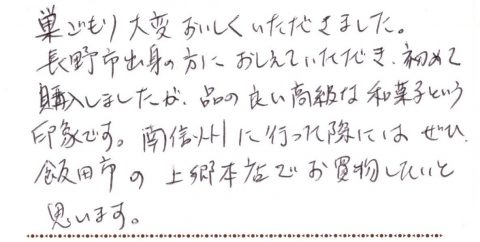 巣ごもり大変おいしくいただきました。
長野市出身の方におしえていただき、初めて
購入しましたが、品の良い高級な和菓子という
印象です。南信州に行った際にはぜひ、
飯田市の上郷本店でお買物したいと
思います。